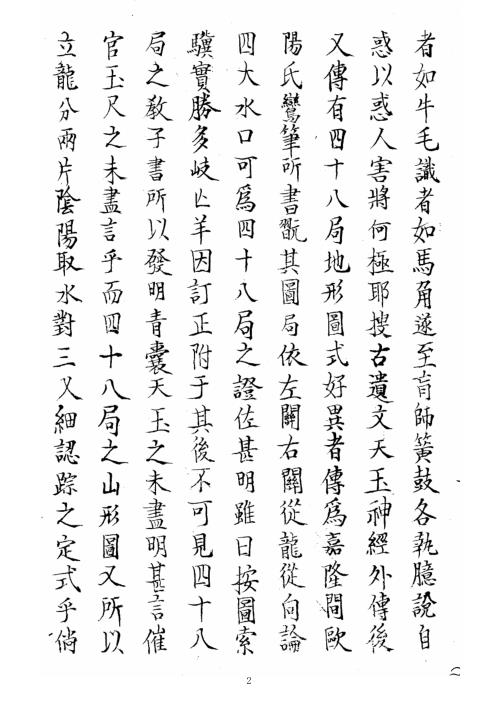 者如牛毛識者如馬角遂至盲師簧鼓各執臆說自
惑以惑人害將何極耶搜古遺文天玉神經外傳後
又傳有四十八局地形圖式好異者傳爲嘉隆間歐
陽氏鸞筆所書翫其圖局依左關右關從龍從向論
四大水口可爲四十八局之證佐甚明雖曰按圖索
驥實勝多岐亾羊因訂正附于其後不可見四十八
局之敎子書所以發明青囊天玉之未盡明甚言催
官玉尺之未盡言乎而四十八局之山形圖又所以
立龍分兩片陰陽取水對三叉細認踪之定式乎倘
2